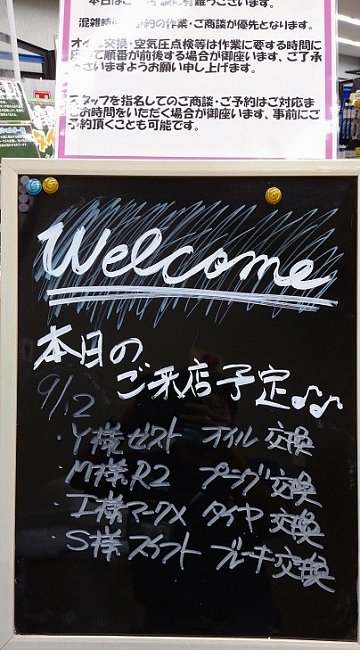 本日はご
混雑時 約の作業・ご商談が優先となります。
オイル交換・空気圧点検等は作業に要する時間に
ご順番が前後する場合が御座います、ご了承
ざいますようお願い申し上げます。
スタッフを指名してのご商談・ご予約はご対応ま
お時間をいただく場合が御座います、事前にご
予約頂くことも可能です。
Welcome
本日の
ご来店予定♪♪
9/12
・Y様ゼスト オイル 交換
・M様R2 プラグ 交換
・I様マークX タイヤ 交換
・S様スイフト ブレーキ交換